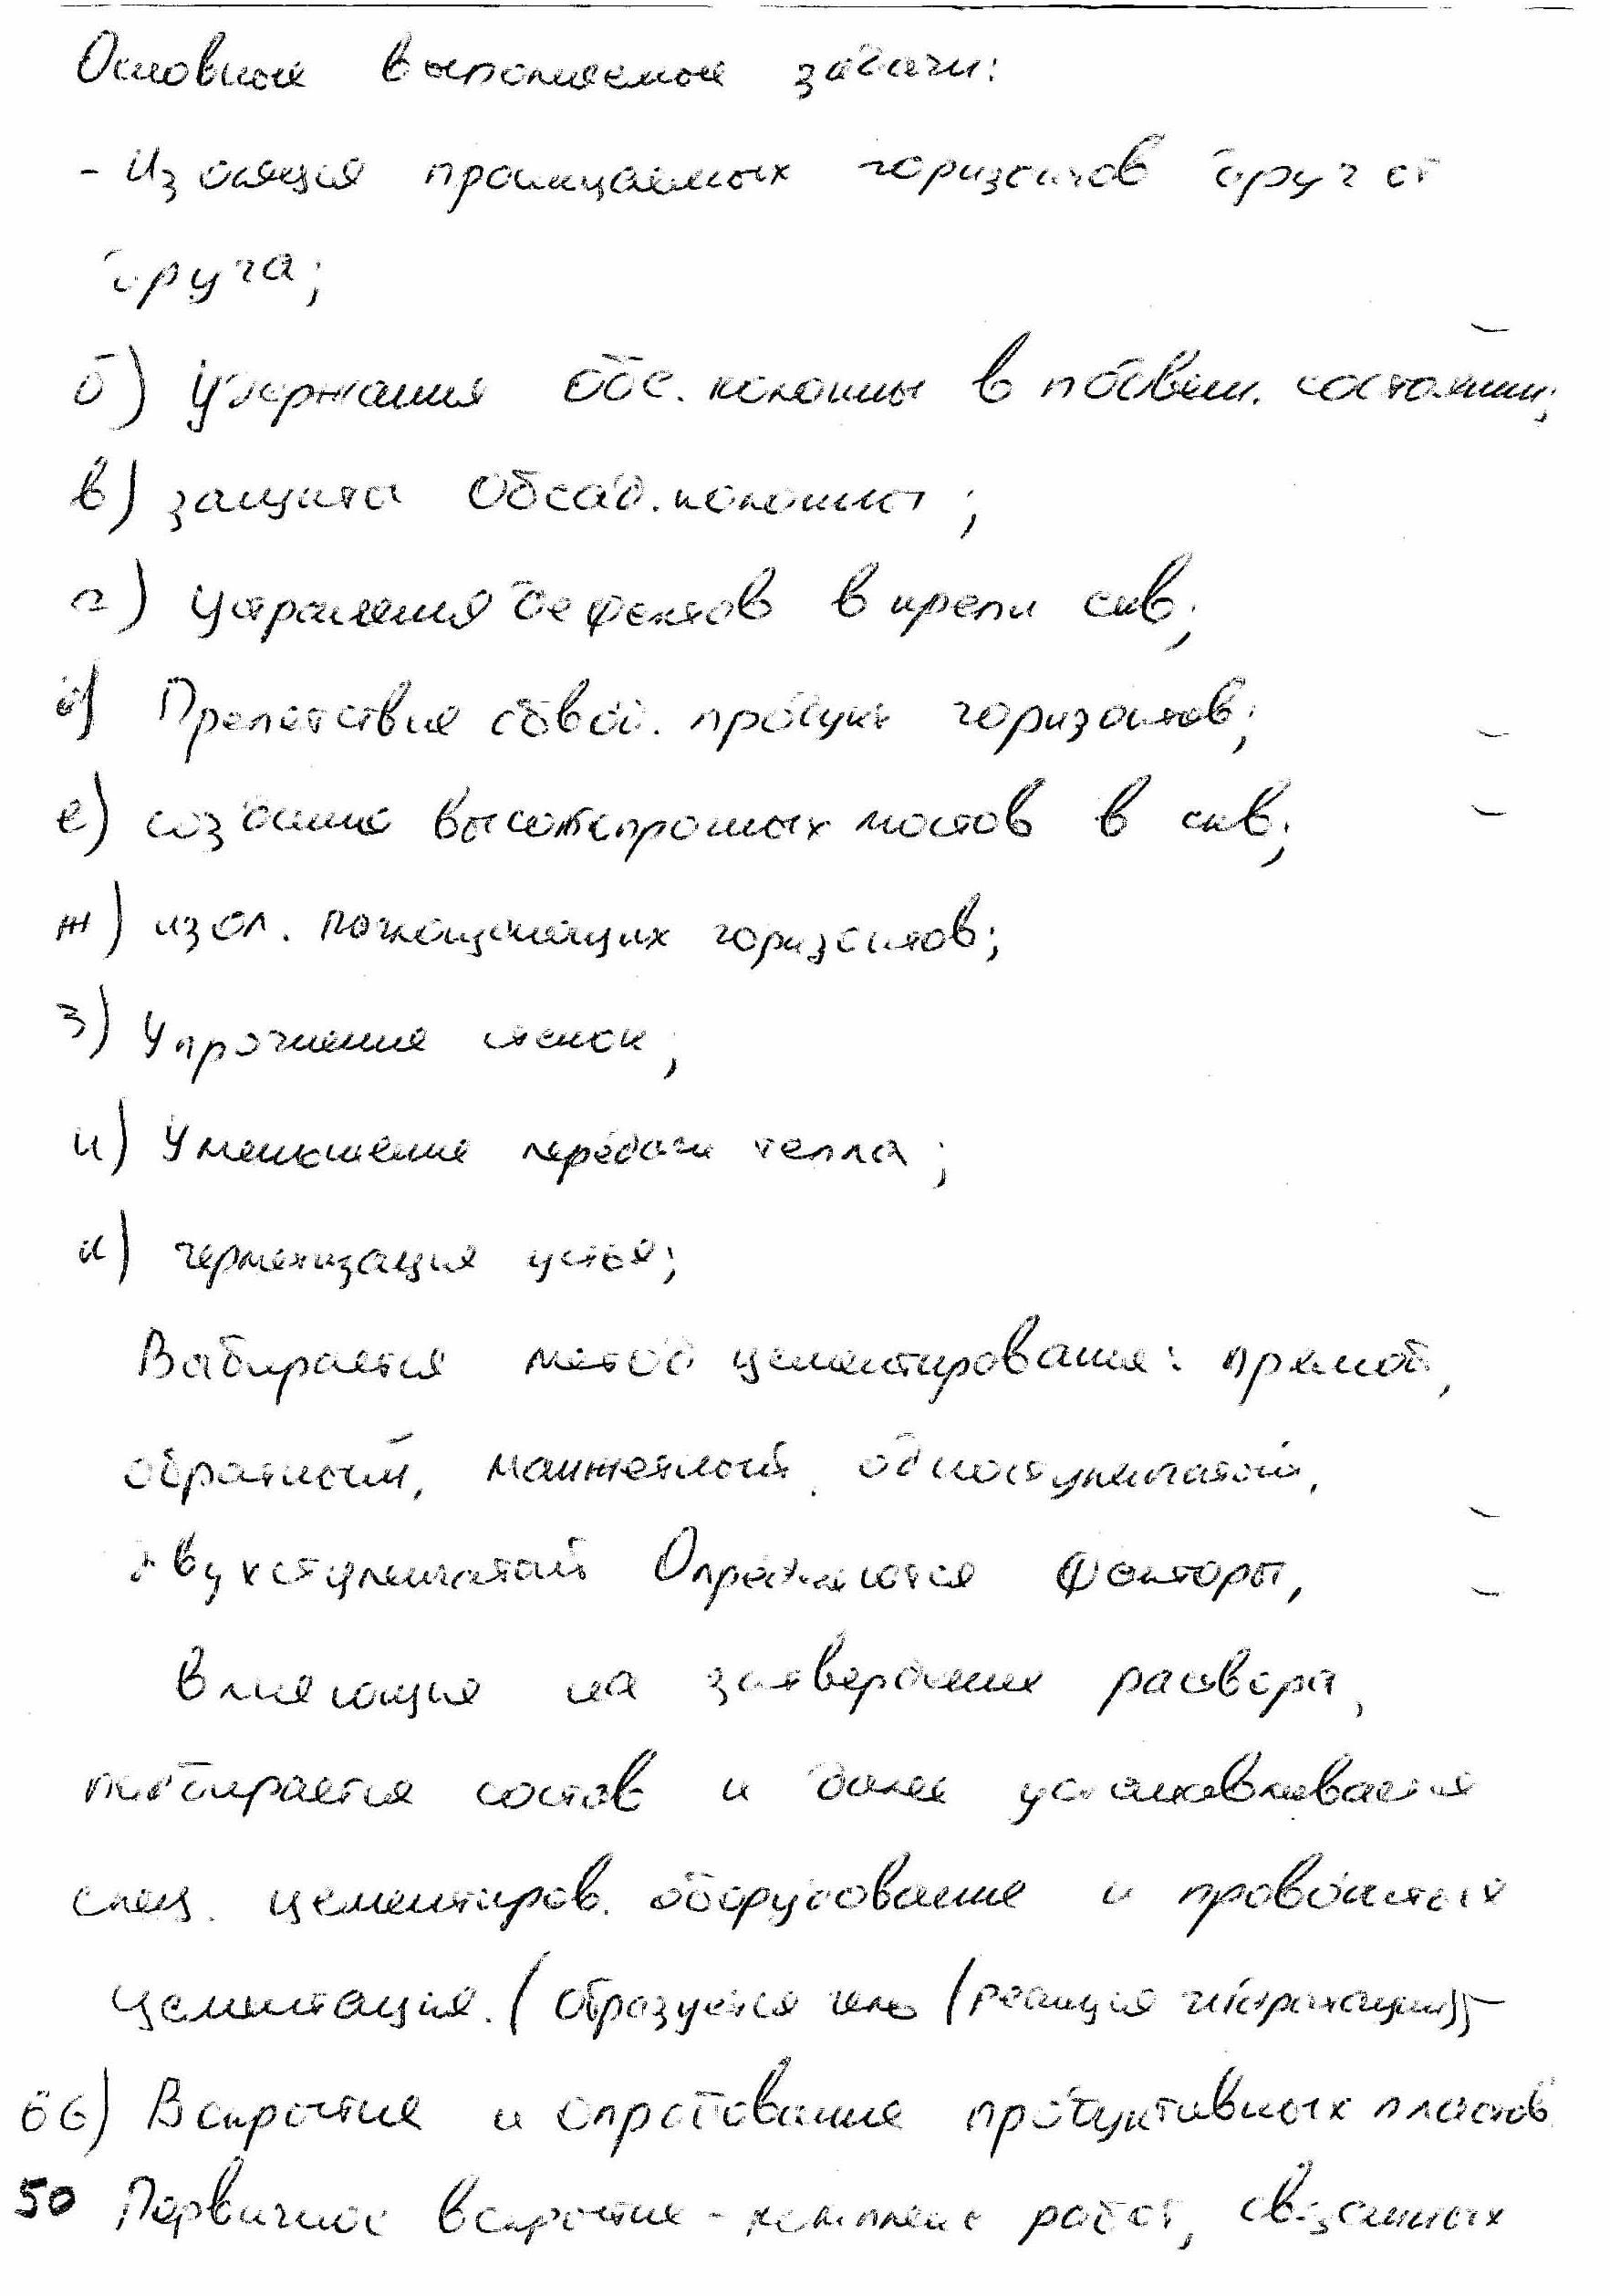 Основные выполняемые задачи:
- Изоляция проницаемых горизонтов друг от
друга;
б) Удержания обс. колонны в подвеш. состоянии;
в) защита обсад. колонны;
г) Устранения дефектов в крепи скв;
д) Препятствие обвод. продукт горизонтов;
е) создание высокопрочных мостов в скв;
ж) изол. поглощающих горизонтов;
з) Упрочнение стенок;
и) Уменьшение передачи тепла;
к) герметизация устья;
Выбирается метод цементирования: прямой,
обратный, манжетный, одноступенчатый,
двухступенчатый Определяются факторы,
Влияющие на затвердение раствора,
подбирается состав и далее устанавливается
спец. цементиров. оборудование и проводится
Цементация. (образуется гель (реакция гидратации));
66) Вскрытие и опробование продуктивных пластов
50 Первичное вскрытие - комплекс работ, связанных